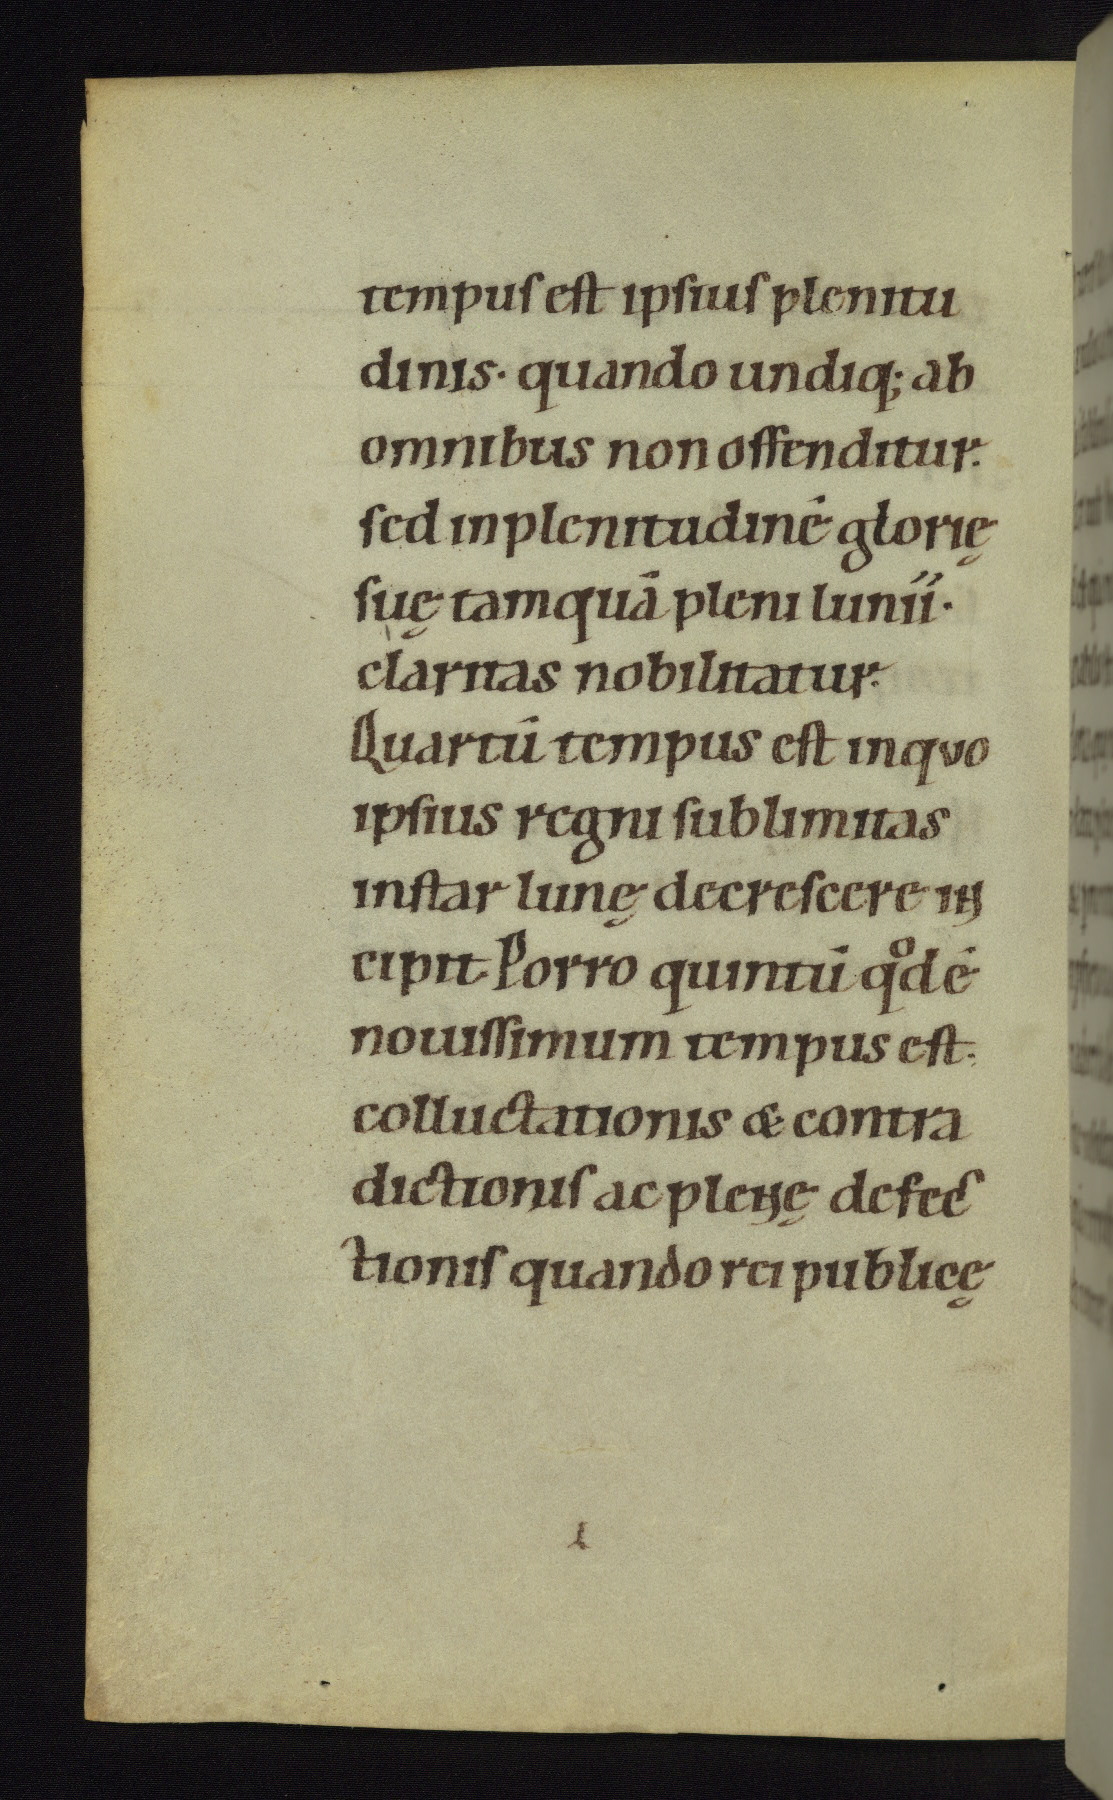 tempuſ eſt ipſiuſ plenitu
dinis· quando undiq; ab
omnibus non offenditur.
ſed in plenitudinē glorię
ſuę tamquā pleni lunii·
claritas nobilitatur.
Quartū tempus eſt in quo
ipſius regni ſublimitas
inſtar lunę decreſcere in
cipit· Porro quintū qͦdē
nouiſſimum tempus eſt.
colluctationis & contra
dictioniſ ac plenę defec
tioniſ quando rei publicę